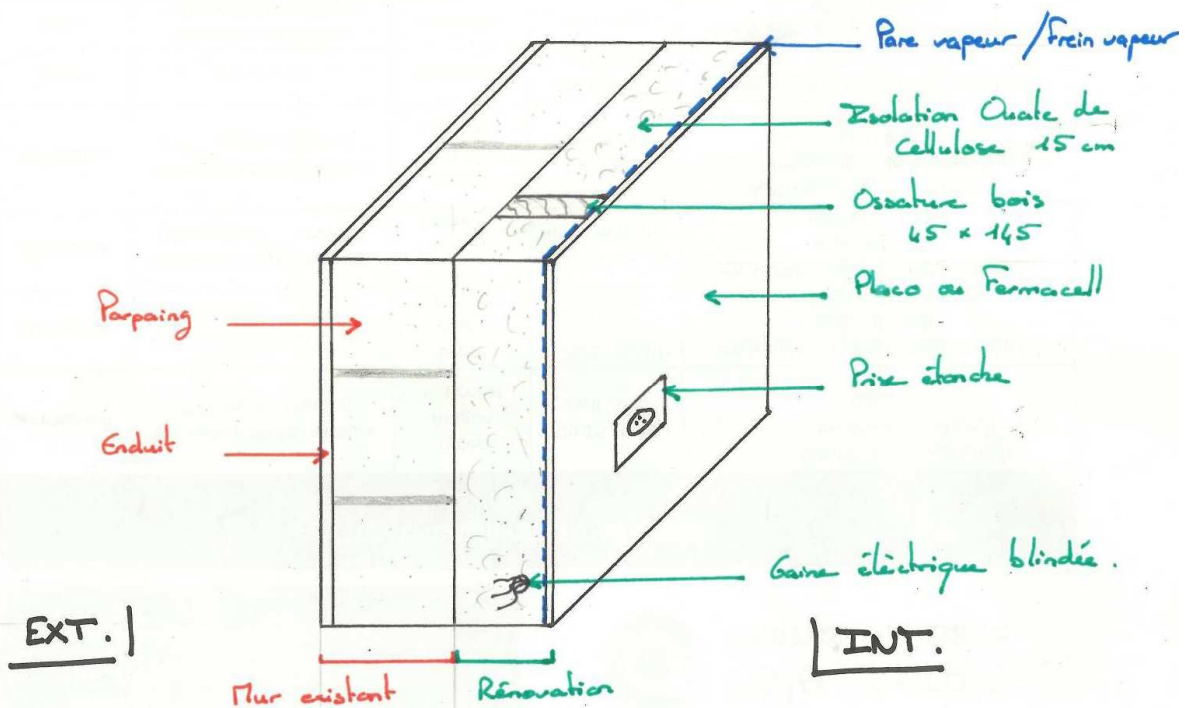 Pare vapeur / Frein vapeur
Isolation Ouate de
cellulose 15 cm
Ossature bois
45 x 145
Placo ou Fermacell
Parpaing
Prise étanche
Enduit
Gaine éléctrique blindée.
EXT.
INT.
Mur existant
Rénovation